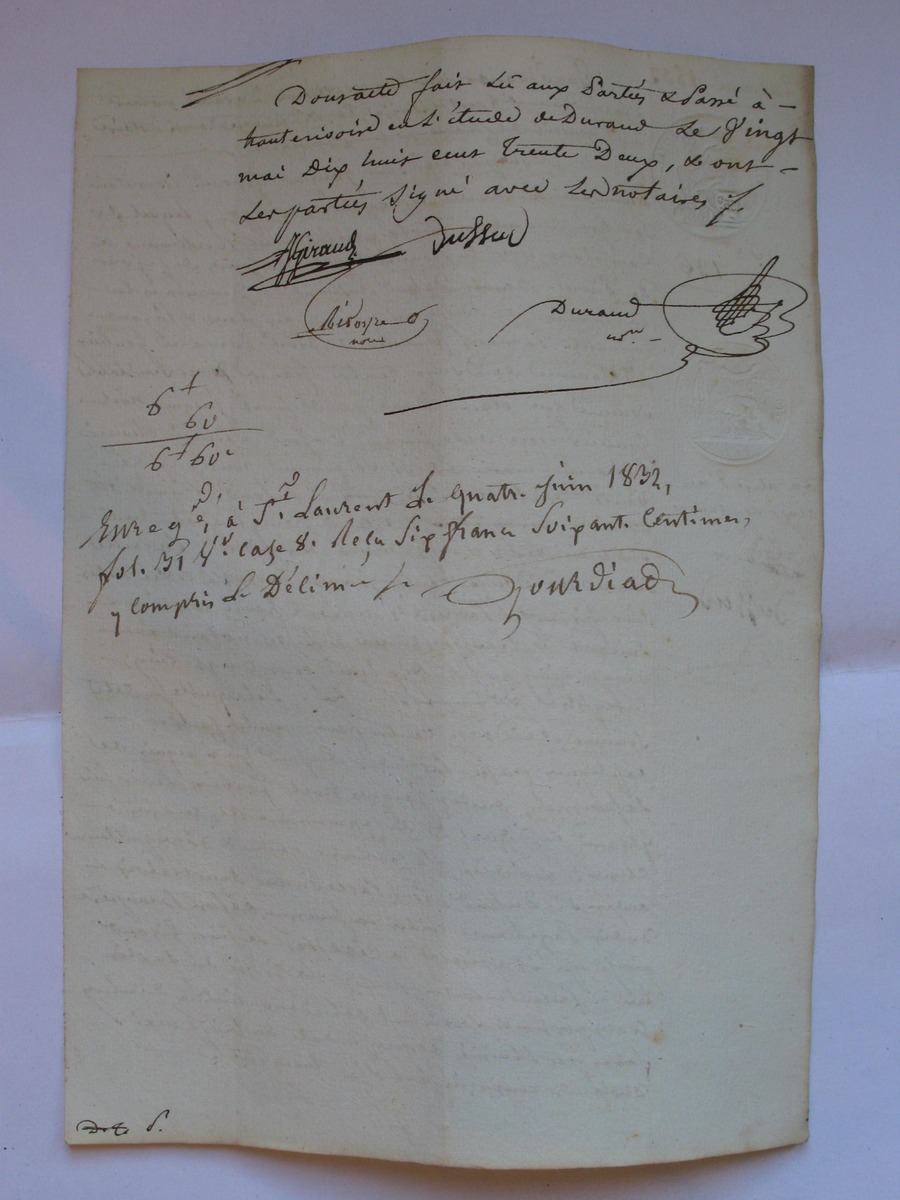 Dont acte fait Lû aux Parties & Passé à -
hauterivoire en L'étude de Durand Le Vingt
mai Dix huit cent Trente Deux, & ont -
Les parties Signé avec Les notaires
AGiraud Dussud
Durand
nre
6f
60
6f 60c
Enregé, à St. Laurent Le quatre juin 1832,
fol. 31 Vo. Case 8. Reçu Six francs Soixante Centimes,
y compris Le Décime
Gourdiad